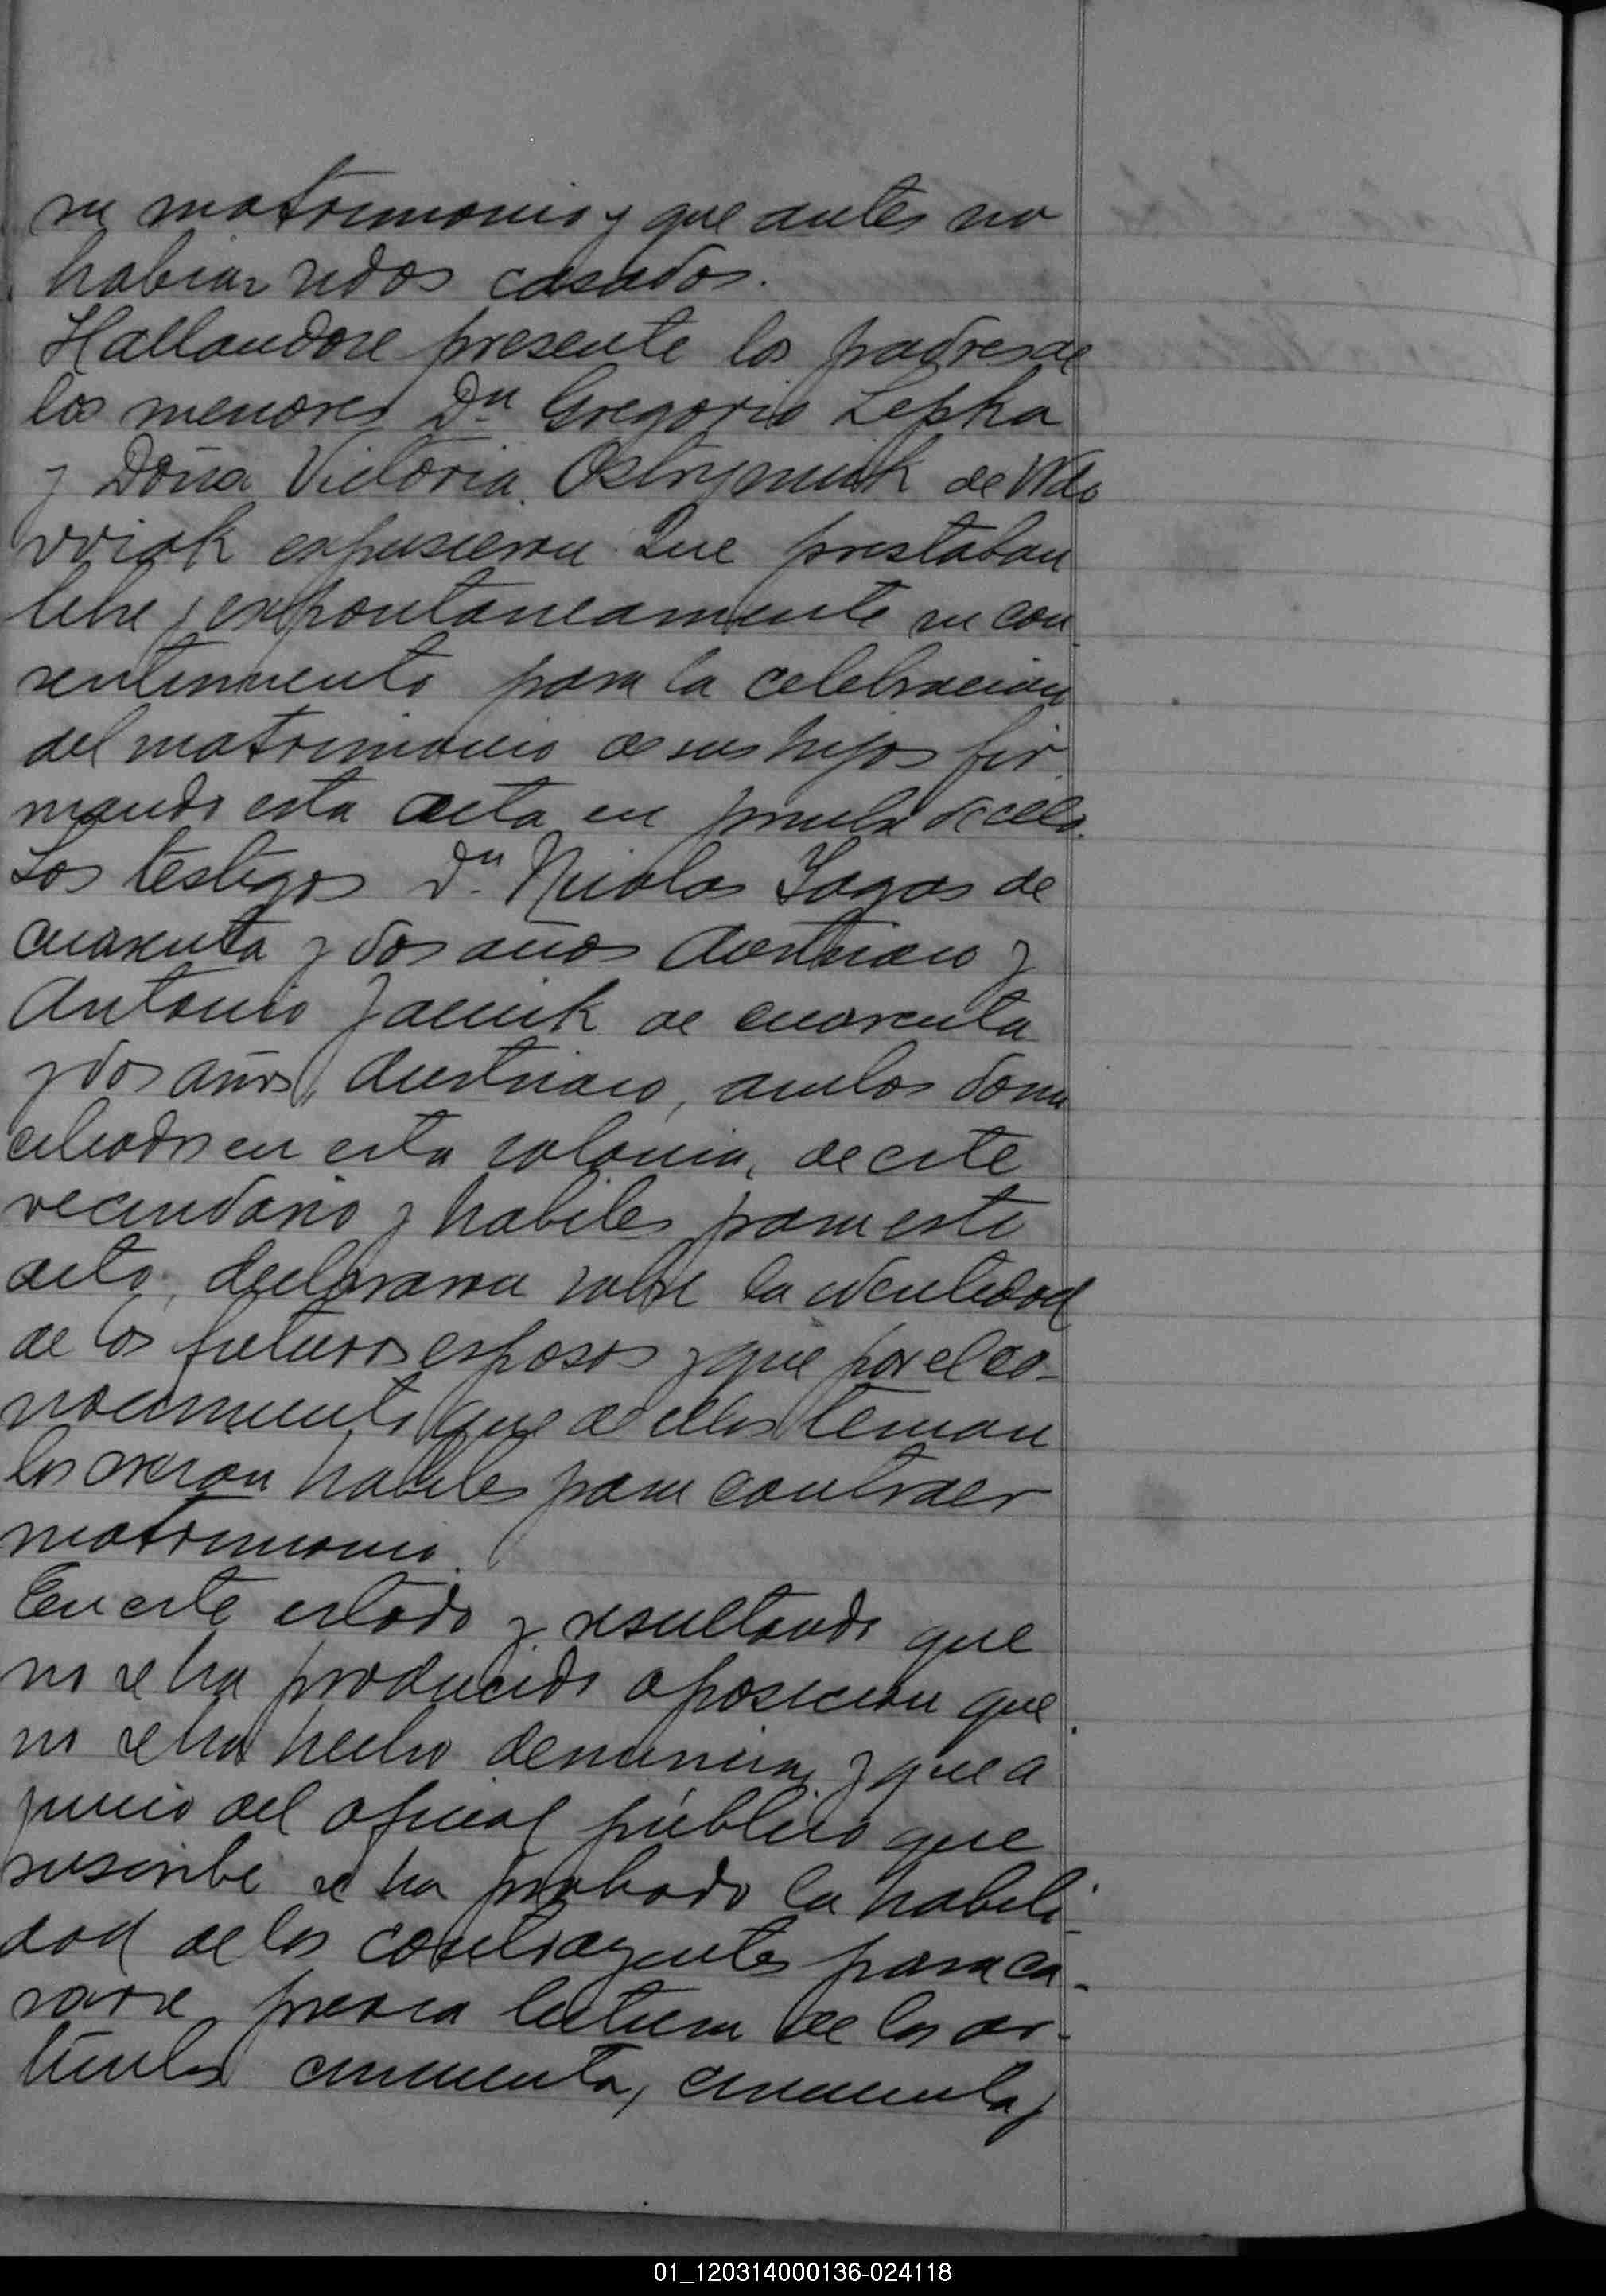 su matrimonio y que antes no
habian sidos casados.
Hallandose presente los padres de
los menores Dn Gregorio Lepka
y Doña Victoria de Wdo
wiak expusieron Que prestaban
libre y expontaneamente su con
sentimiento para la celebracion
del matrimonio de sus hijos fir
mando esta acta en prueba de ello.
Los testigos Dn Nicolas Sagas de
cuarenta y dos años Austriaco y
Antonio de cuarenta
y dos años, Austriaco, ambos domi
ciliados en esta colonia, de este
vecindario y habiles para este
acto, declararon sobre la identidad
de los futuros esposos y que por el co-
nocimiento que de ellos tenian
los creian habiles para contraer
matrimonio.
En este estado y resultando que
no se ha producido oposicion que
no se ha hecho denuncia, y que a
juicio del oficial público que
suscribe se ha probado la habili-
dad de los contrayentes para ca-
sarse, previa lectura de los ar-
ticulos cincuenta, cincuenta y
01_120314000136-024118